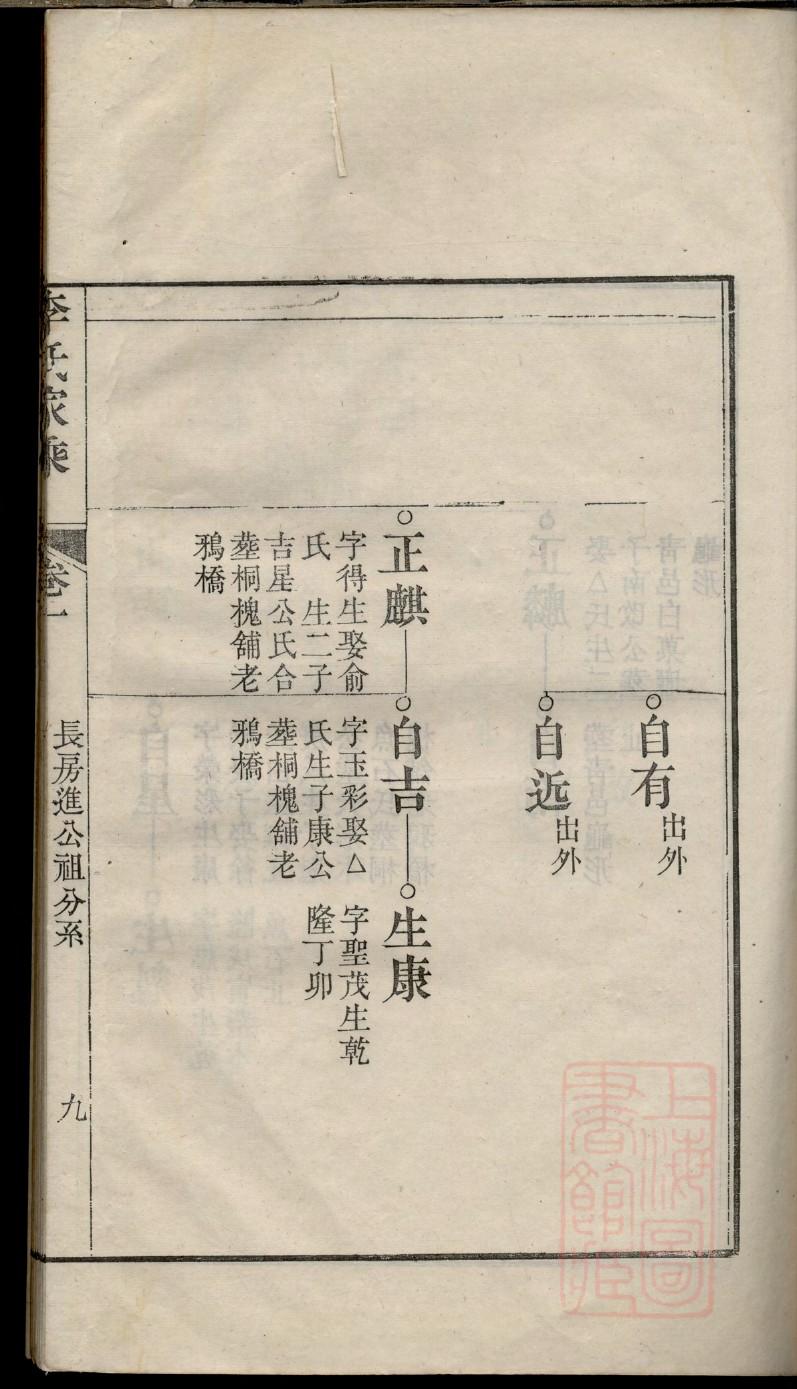 自有
出外
自近
出外
正麒
字得生娶俞
氏　生二子
吉星公氏合
塟桐槐舖老
鴉橋
自吉
字玉彩娶△
氏生子康公
塟桐槐舖老
鴉橋
生康
字聖茂生乾
隆丁卯
李氏家乘
卷一
長房進公祖分系
九
上海圖
書館藏